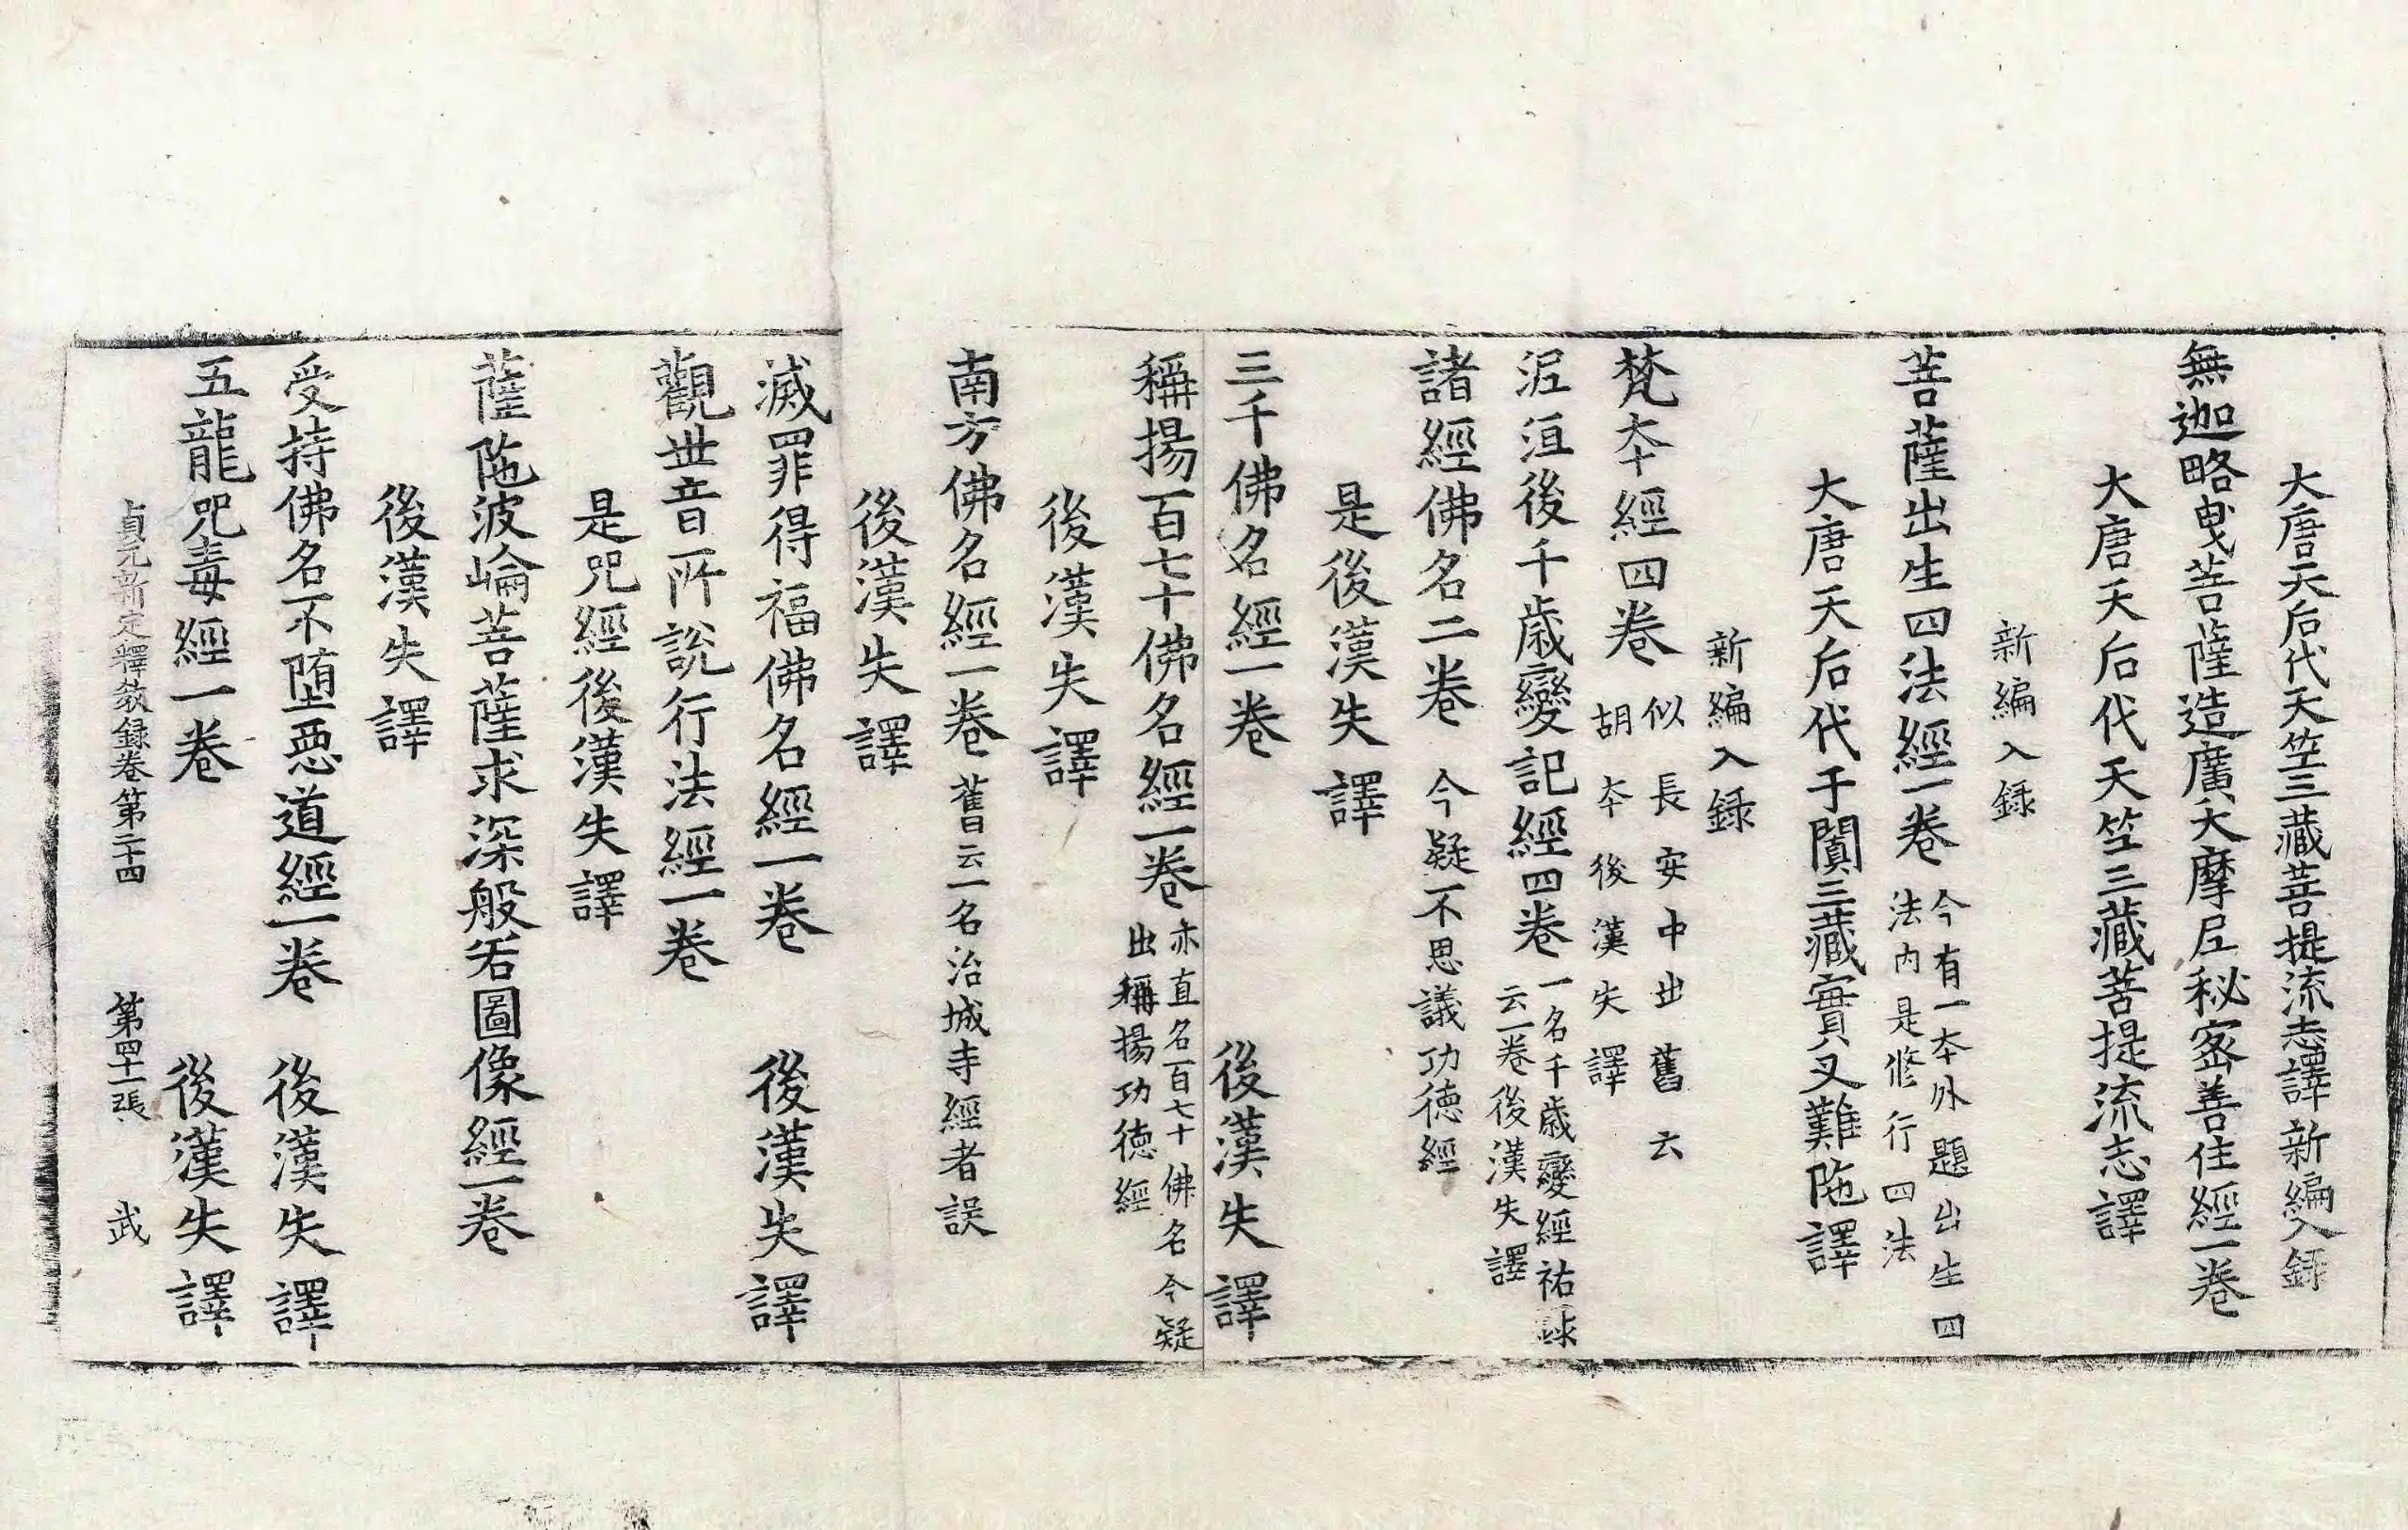 大唐天后代天竺三藏菩提流志譯新編入録
無迦略曳菩薩造廣大摩尼秘密善住經一卷
大唐天后代天竺三藏菩提流志譯
新編入録
菩薩出生四法經一卷今有一夲外題出生四
法内是修行四法
大唐天后代于闐三藏實叉難陁譯
新編入録
梵夲經四卷似長安中出舊云
胡夲後漢失譯
泥洹後千歲變記經四卷一名千歲變經祐録
云一卷後漢失譯
諸經佛名二卷今疑不思議功德經
是後漢失譯
三千佛名經一卷後漢失譯
稱揚百七十佛名經一卷亦直名百七十佛名今疑
出稱揚功德經
後漢失譯
南方佛名經一卷舊云一名治城寺經者誤
後漢失譯
滅罪得福佛名經一卷後漢失譯
觀世音所說行法經一卷
是咒經後漢失譯
薩陁波崘菩薩求深般若圖像經一卷
後漢失譯
受持佛名不墮惡道經一卷後漢失譯
五龍咒毒經一卷後漢失譯
貞元新定釋教録卷第二十四 第四十一張 武